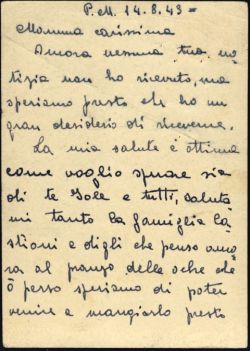 P.M. 14.8.43=
Mamma carissima
Ancora nessuna tua no=
tizia non ho ricevuto, ma
speriamo presto che ho un
gran desiderio di riceverne.
La mia salute è ottima
come voglio sperare sia
di te Iole e tutti, saluta
mi tanto la famiglia Ca
stioni e digli che penso anco
ra al pranzo delle oche che
ò perso speriamo di poter
venire a mangiarlo presto